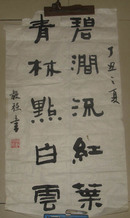 碧澗流紅葉
青林點白雲
丁丑之夏
書